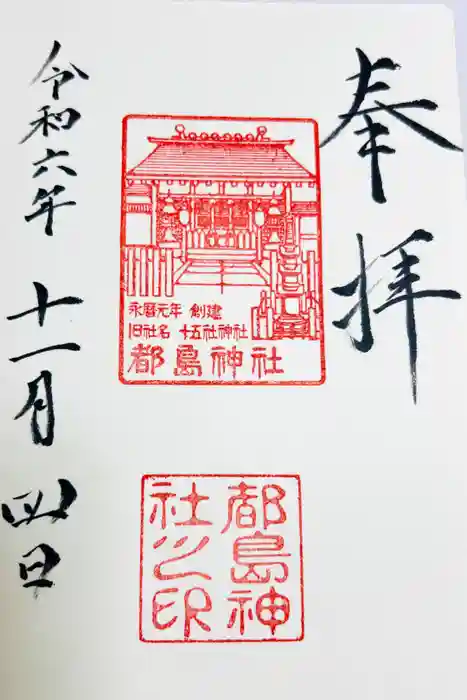 奉拝
永暦元年 創建
旧社名 十五社神社
都島神社
都島神
社之印
令和六年 十一月 四日